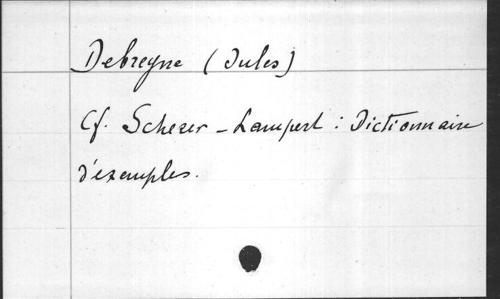 Debreyne (Jules)
Cf. Scherer - Lampert : Dictionnaire
d'exemples.